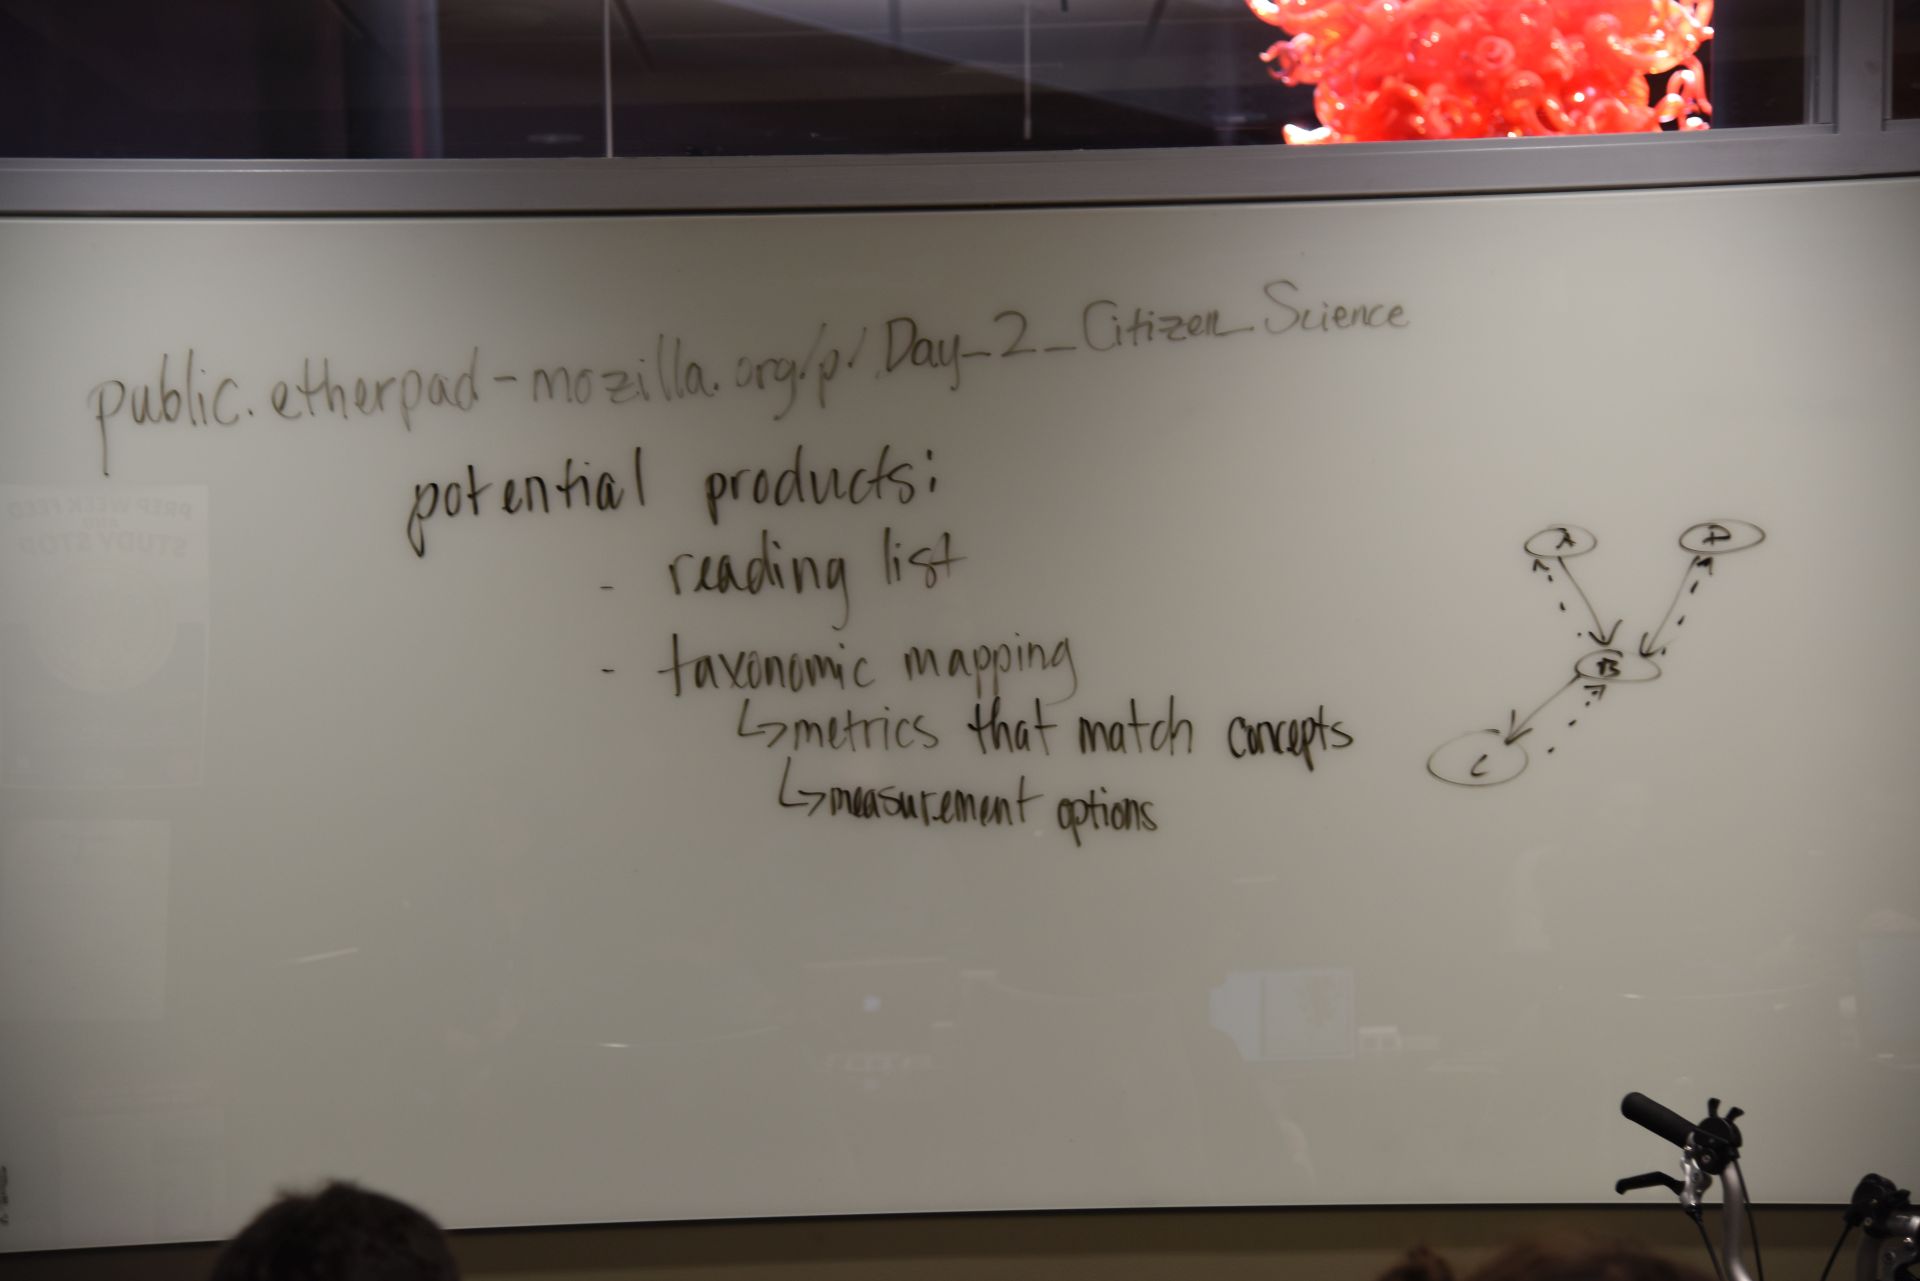 public.etherpad-mozilla.org/p/Day_2_Citizen_Science
potential products:
- reading list
- taxonomic mapping
↳ metrics that match concepts
↳ measurement options
A
D
B
C
PREP WEEK FEED
AND
STUDY STOP